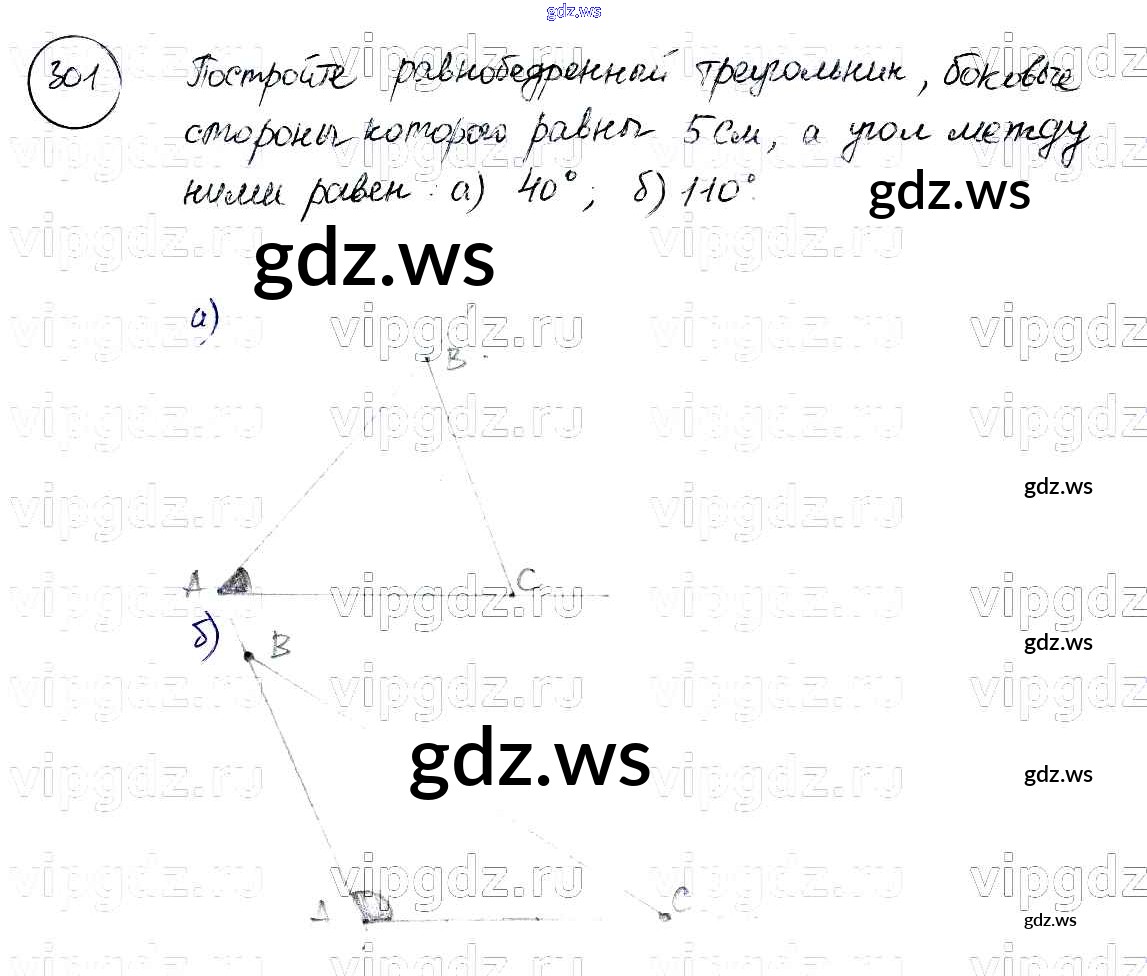 gdz.ws
301 Постройте равнобедренный треугольник, боковые
стороны которого равны 5 см, а угол между
ними равен: а) 40°; б) 110°.
gdz.ws
gdz.ws
а)
vipgdz.ru
B
gdz.ws
A
C
б)
B
gdz.ws
gdz.ws
gdz.ws
A
C
gdz.ws